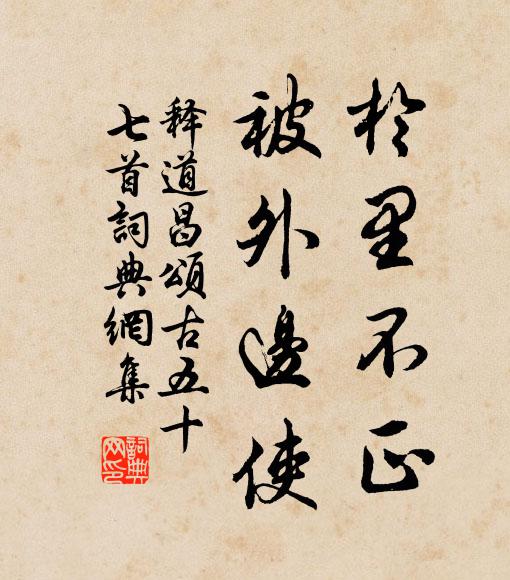 於里不正
被外邊使
释道昌頌古五十
七首詞典網集
詞典
网印